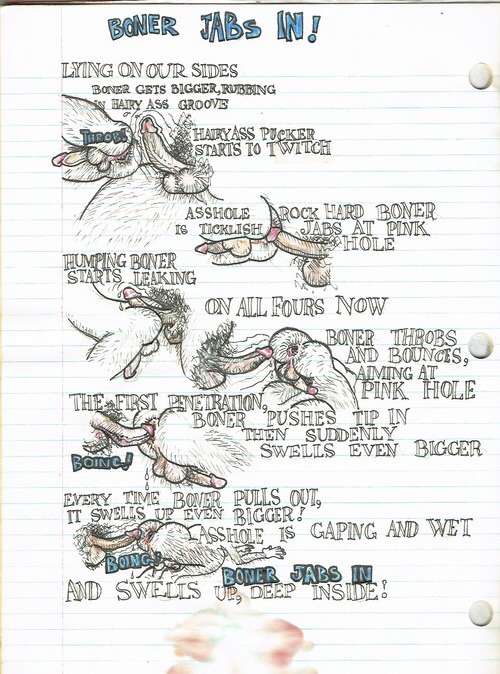 BONER JABS IN!
LYING ON OUR SIDES
BONER GETS BIGGER, RUBBING
IN HAIRY ASS GROOVE
THROB!
HAIRY ASS PUCKER
STARTS TO TWITCH
ASSHOLE
IS TICKLISH
ROCK HARD BONER
JABS AT PINK
HOLE
HUMPING BONER
STARTS LEAKING
ON ALL FOURS NOW
BONER THROBS
AND BOUNCES,
AIMING AT
PINK HOLE
THE FIRST PENETRATION,
BONER PUSHES TIP IN
THEN SUDDENLY
SWELLS EVEN BIGGER
BOING!
EVERY TIME BONER PULLS OUT,
IT SWELLS UP EVEN BIGGER!
ASSHOLE IS GAPING AND WET
BOING!
BONER JABS IN
AND SWELLS UP, DEEP INSIDE!